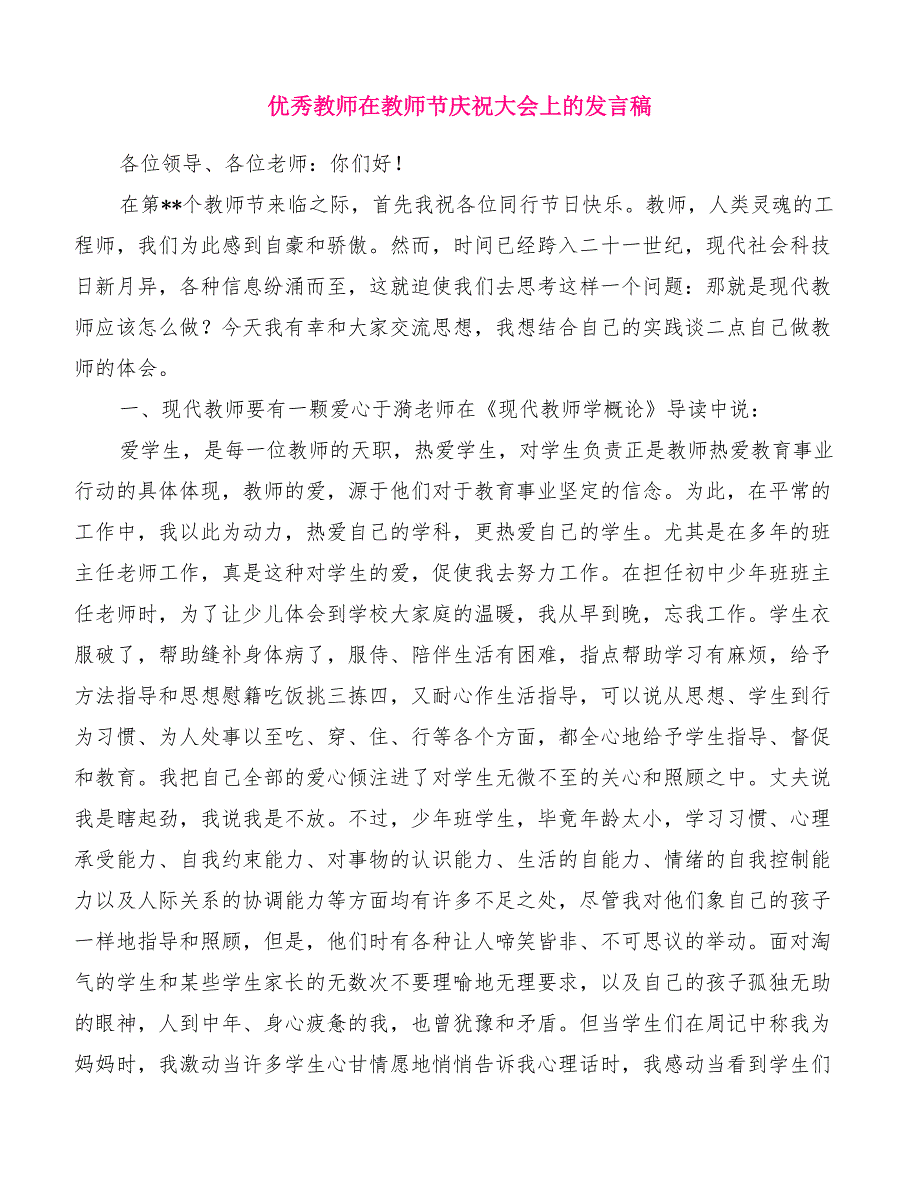 优秀教师在教师节庆祝大会上的发言稿
各位领导、各位老师：你们好！
在第**个教师节来临之际，首先我祝各位同行节日快乐。教师，人类灵魂的工
程师，我们为此感到自豪和骄傲。然而，时间已经跨入二十一世纪，现代社会科技
日新月异，各种信息纷涌而至，这就迫使我们去思考这样一个问题：那就是现代教
师应该怎么做？今天我有幸和大家交流思想，我想结合自己的实践谈二点自己做教
师的体会。
一、现代教师要有一颗爱心于漪老师在《现代教师学概论》导读中说：
爱学生，是每一位教师的天职，热爱学生，对学生负责正是教师热爱教育事业
行动的具体体现，教师的爱，源于他们对于教育事业坚定的信念。为此，在平常的
工作中，我以此为动力，热爱自己的学科，更热爱自己的学生。尤其是在多年的班
主任老师工作，真是这种对学生的爱，促使我去努力工作。在担任初中少年班班主
任老师时，为了让少儿体会到学校大家庭的温暖，我从早到晚，忘我工作。学生衣
服破了，帮助缝补身体病了，服侍、陪伴生活有困难，指点帮助学习有麻烦，给予
方法指导和思想慰籍吃饭挑三拣四，又耐心作生活指导，可以说从思想、学生到行
为习惯、为人处事以至吃、穿、住、行等各个方面，都全心地给予学生指导、督促
和教育。我把自己全部的爱心倾注进了对学生无微不至的关心和照顾之中。丈夫说
我是瞎起劲，我说我是不放。不过，少年班学生，毕竟年龄太小，学习习惯、心理
承受能力、自我约束能力、对事物的认识能力、生活的自能力、情绪的自我控制能
力以及人际关系的协调能力等方面均有许多不足之处，尽管我对他们象自己的孩子
一样地指导和照顾，但是，他们时有各种让人啼笑皆非、不可思议的举动。面对淘
气的学生和某些学生家长的无数次不要理喻地无理要求，以及自己的孩子孤独无助
的眼神，人到中年、身心疲惫的我，也曾犹豫和矛盾。但当学生们在周记中称我为
妈妈时，我激动当许多学生心甘情愿地悄悄告诉我心理话时，我感动当看到学生们